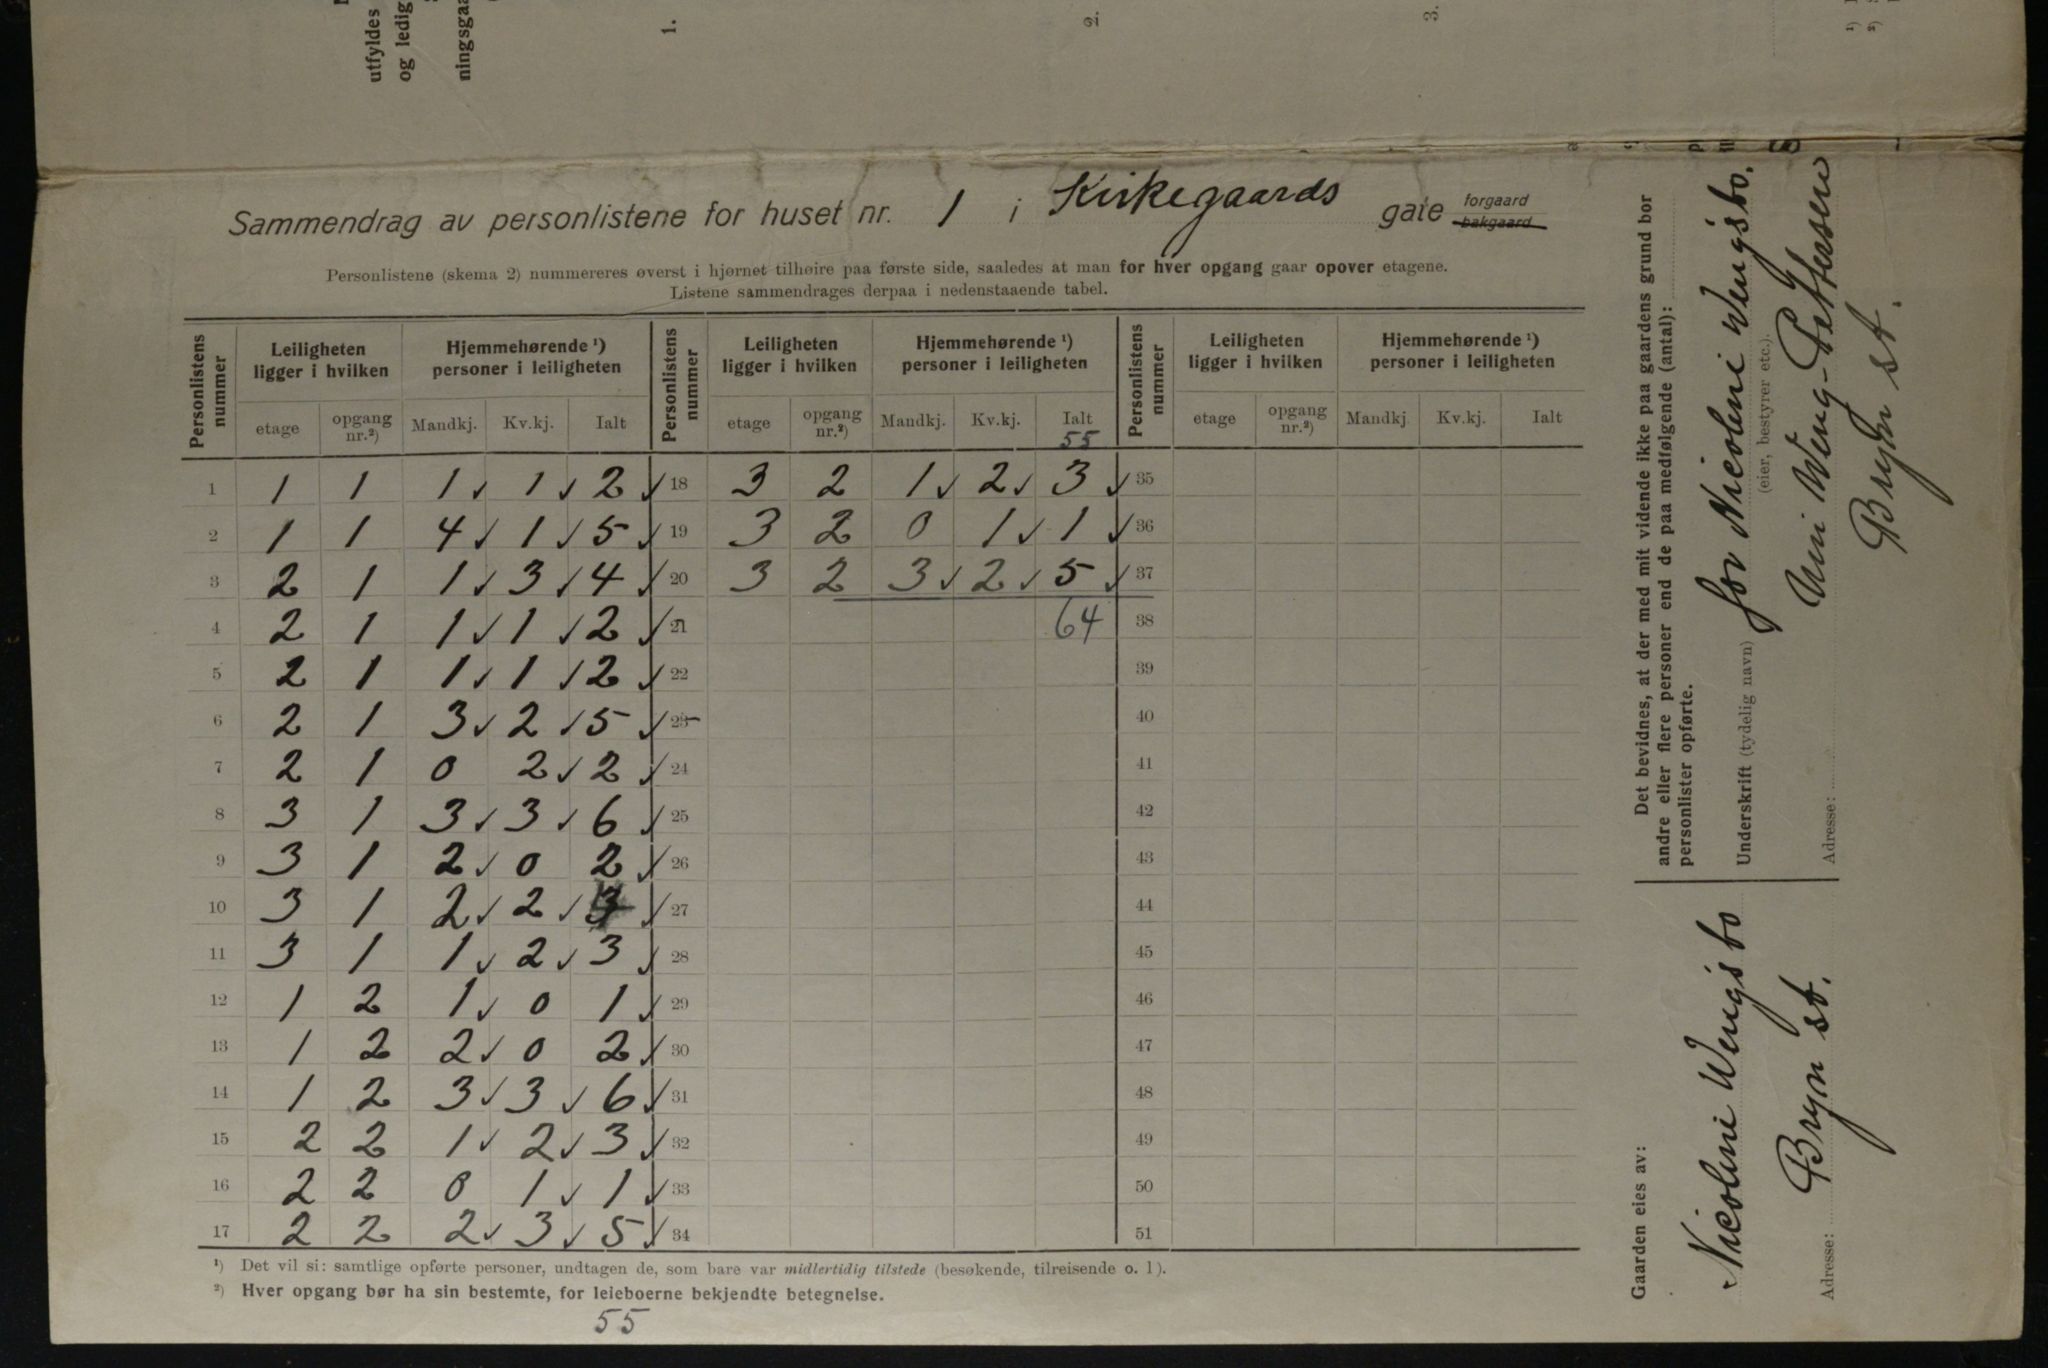 utfyldes
og ledig
ningsgaa
1.
2.
3.
Sammendrag av personlistene for huset nr. 1 i Kirkegaards gate forgaard
bakgaard
Personlistene (skema 2) nummereres øverst i hjørnet tilhøire paa første side, saaledes at man for hver opgang gaar opover etagene.
Listene sammendrages derpaa i nedenstaaende tabel.
Personlistens nummer | Leiligheten ligger i hvilken | Hjemmehørende ¹) personer i leiligheten | Personlistens nummer | Leiligheten ligger i hvilken | Hjemmehørende ¹) personer i leiligheten | Personlistens nummer | Leiligheten ligger i hvilken | Hjemmehørende ¹) personer i leiligheten
etage | opgang nr.²) | Mandkj. | Kv.kj. | Ialt | etage | opgang nr.²) | Mandkj. | Kv.kj. | Ialt | etage | opgang nr.²) | Mandkj. | Kv.kj. | Ialt
55
1 1 1 1 ✓ 1 ✓ 2 ✓ 18 3 2 1 ✓ 2 ✓ 3 ✓ 35
2 1 1 4 ✓ 1 ✓ 5 ✓ 19 3 2 0 1 ✓ 1 ✓ 36
3 2 1 1 ✓ 3 ✓ 4 ✓ 20 3 2 3 ✓ 2 ✓ 5 ✓ 37
4 2 1 1 ✓ 1 ✓ 2 ✓ 21 64 38
5 2 1 1 ✓ 1 ✓ 2 ✓ 22 39
6 2 1 3 ✓ 2 ✓ 5 ✓ 23 40
7 2 1 0 2 ✓ 2 ✓ 24 41
8 3 1 3 ✓ 3 ✓ 6 ✓ 25 42
9 3 1 2 ✓ 0 2 ✓ 26 43
10 3 1 2 ✓ 2 ✓ ✓ 27 44
11 3 1 1 ✓ 2 ✓ 3 ✓ 28 45
12 1 2 1 ✓ 0 1 ✓ 29 46
13 1 2 2 ✓ 0 2 ✓ 30 47
14 1 2 3 ✓ 3 ✓ 6 ✓ 31 48
15 2 2 1 ✓ 2 ✓ 3 ✓ 32 49
16 2 2 0 1 ✓ 1 ✓ 33 50
17 2 2 2 ✓ 3 ✓ 5 ✓ 34 51
¹) Det vil si: samtlige opførte personer, undtagen de, som bare var midlertidig tilstede (besøkende, tilreisende o. l).
²) Hver opgang bør ha sin bestemte, for leieboerne bekjendte betegnelse.
55
Det bevidnes, at der med mit vidende ikke paa gaardens grund bor
andre eller flere personer end de paa medfølgende (antal):
personlister opførte.
for Nicoleni Wengsbo.
Underskrift (tydelig navn)
(eier, bestyrer etc.).
Uni Weng-Pettersen
Adresse:
Bryn st.
Gaarden eies av:
Nicolini Wengsbo
Bryn st.
Adresse: